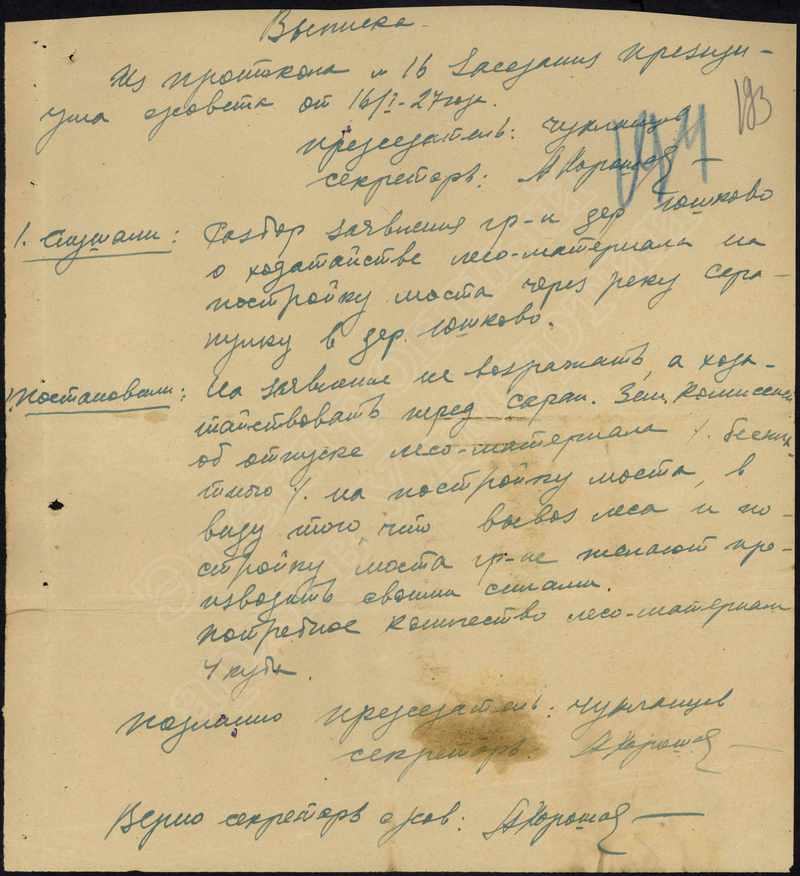 Выписка
Из протокола № 16 заседания президи-
ума с/совета от 16/I-27 года.
193
председатель: Чукланцев
секреторь: А Хорошев
1. Слушали: Разбор заявления гр-н дер Юшково
о ходатайстве лесо-материала на
постройку моста через реку Сера-
пулку в дер. Юшково.
Постановили: На заявление не возражать, а хода-
тайствовать перед Сарап. Зем. Комиссией
об отпуске лесо-материала /. бесплат
тного /. на постройку моста, в
виду того, что вывоз леса и по-
стройку моста гр-не желают про-
изводить своими силами.
потребное количество лесо-материала
4 куба.
подлино председатель: Чукланцев
секреторь: А Хорошев
Верно секреторь с/сов: А Хорошев